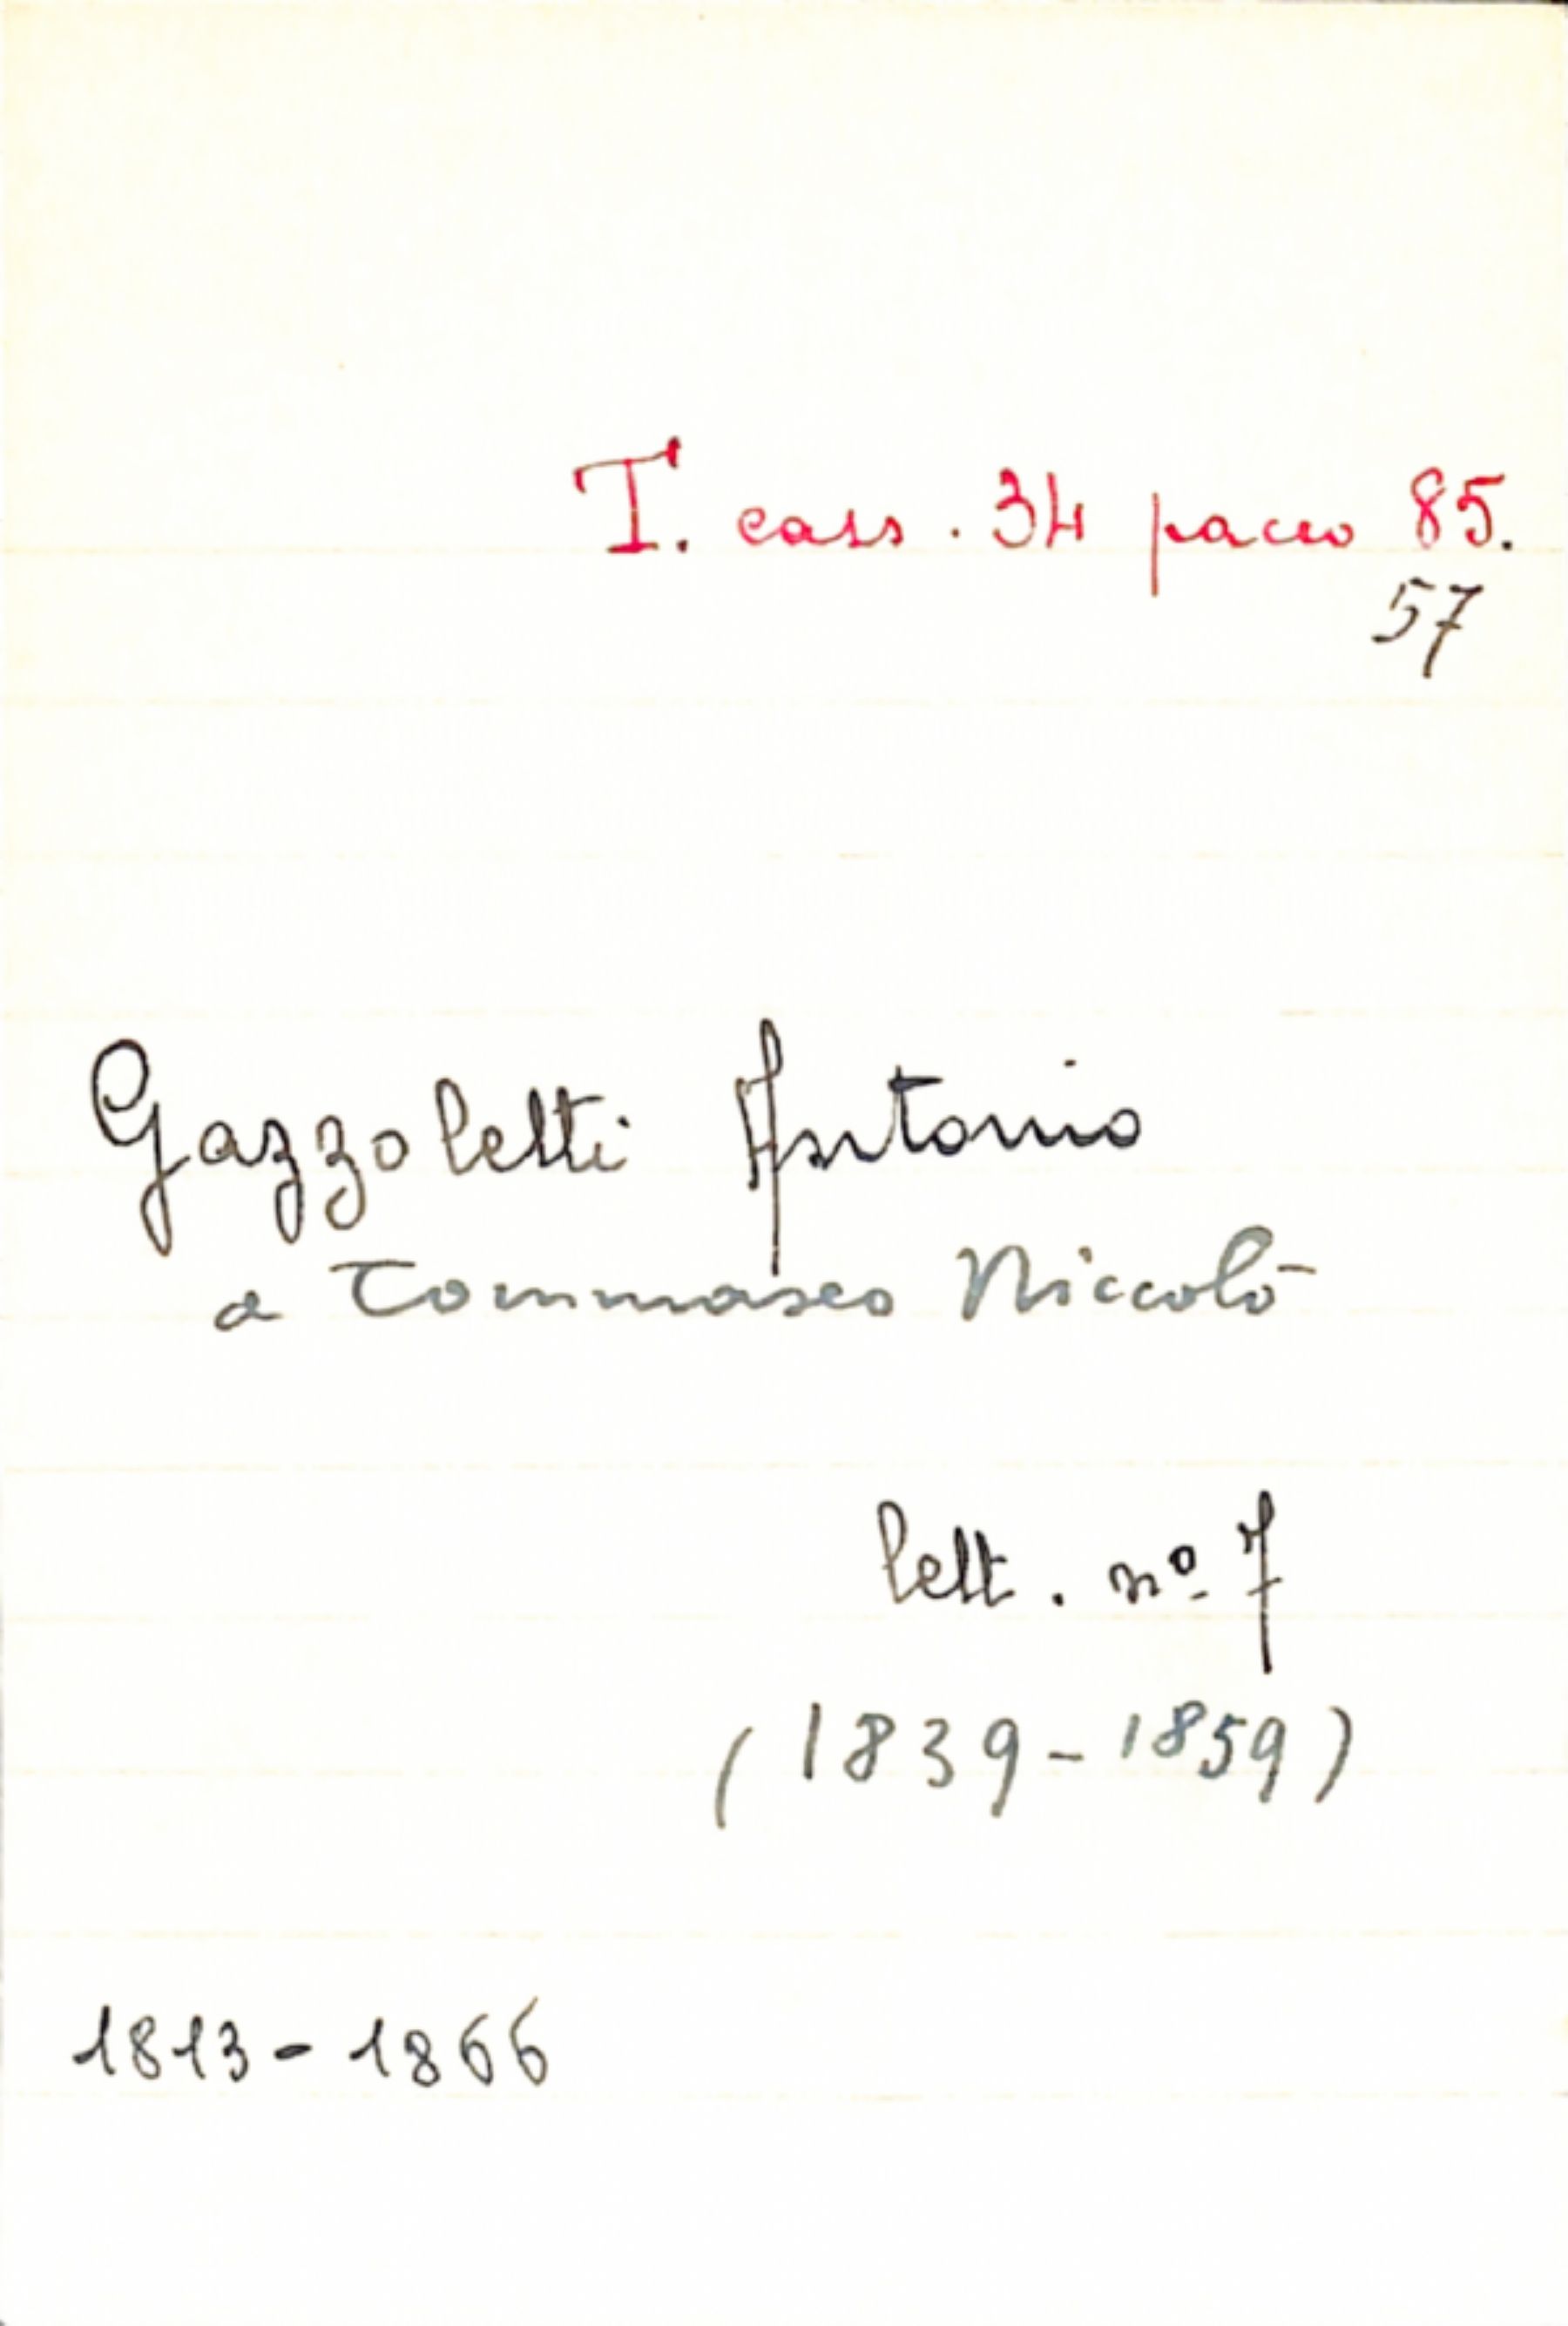 T. cass. 34 pacco 85.
57
Gazzoletti Antonio
a Tommaseo Niccolò
lett. nº 7
(1839-1859)
1813-1866